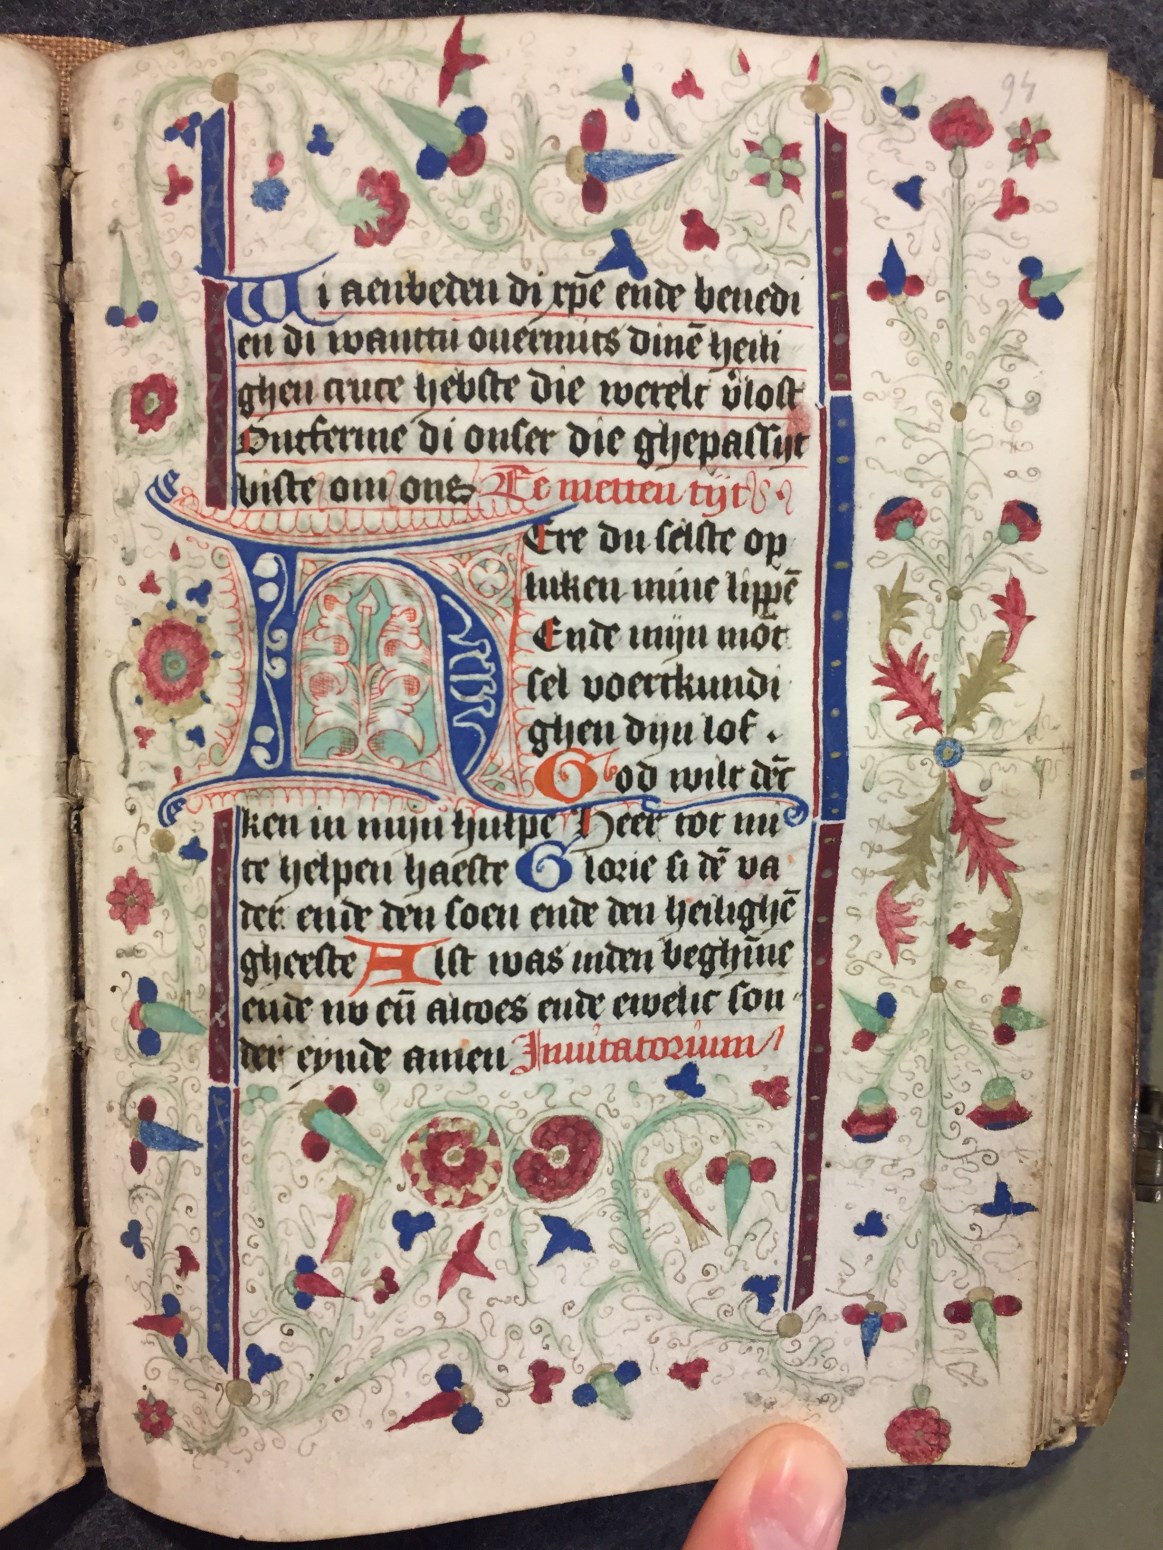 94
Wi aenbeden di xp̄e ende benedi
en di wanttu ouermits dinē heili
ghen cruce hebste die werelt v̓lost
Ontferme di onser die ghepassijt
biste om ons Te metten tijt
HEre du selste op
luken mine lippē
Ende mijn mōt
sel voertkundi
ghen dijn lof .
God wilt dēc
ken in mijn hulpe Heer tot mi
te helpen haeste Glorie si dē va
der ende den soen ende den heilighē
gheeste Alst was inden beghīne
ende nv eñ altoes ende ewelic son
der eynde amen Inuitatorium